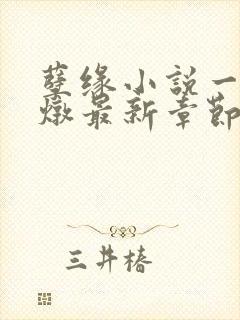 孽缘小説一
燉最新章節
三井椿